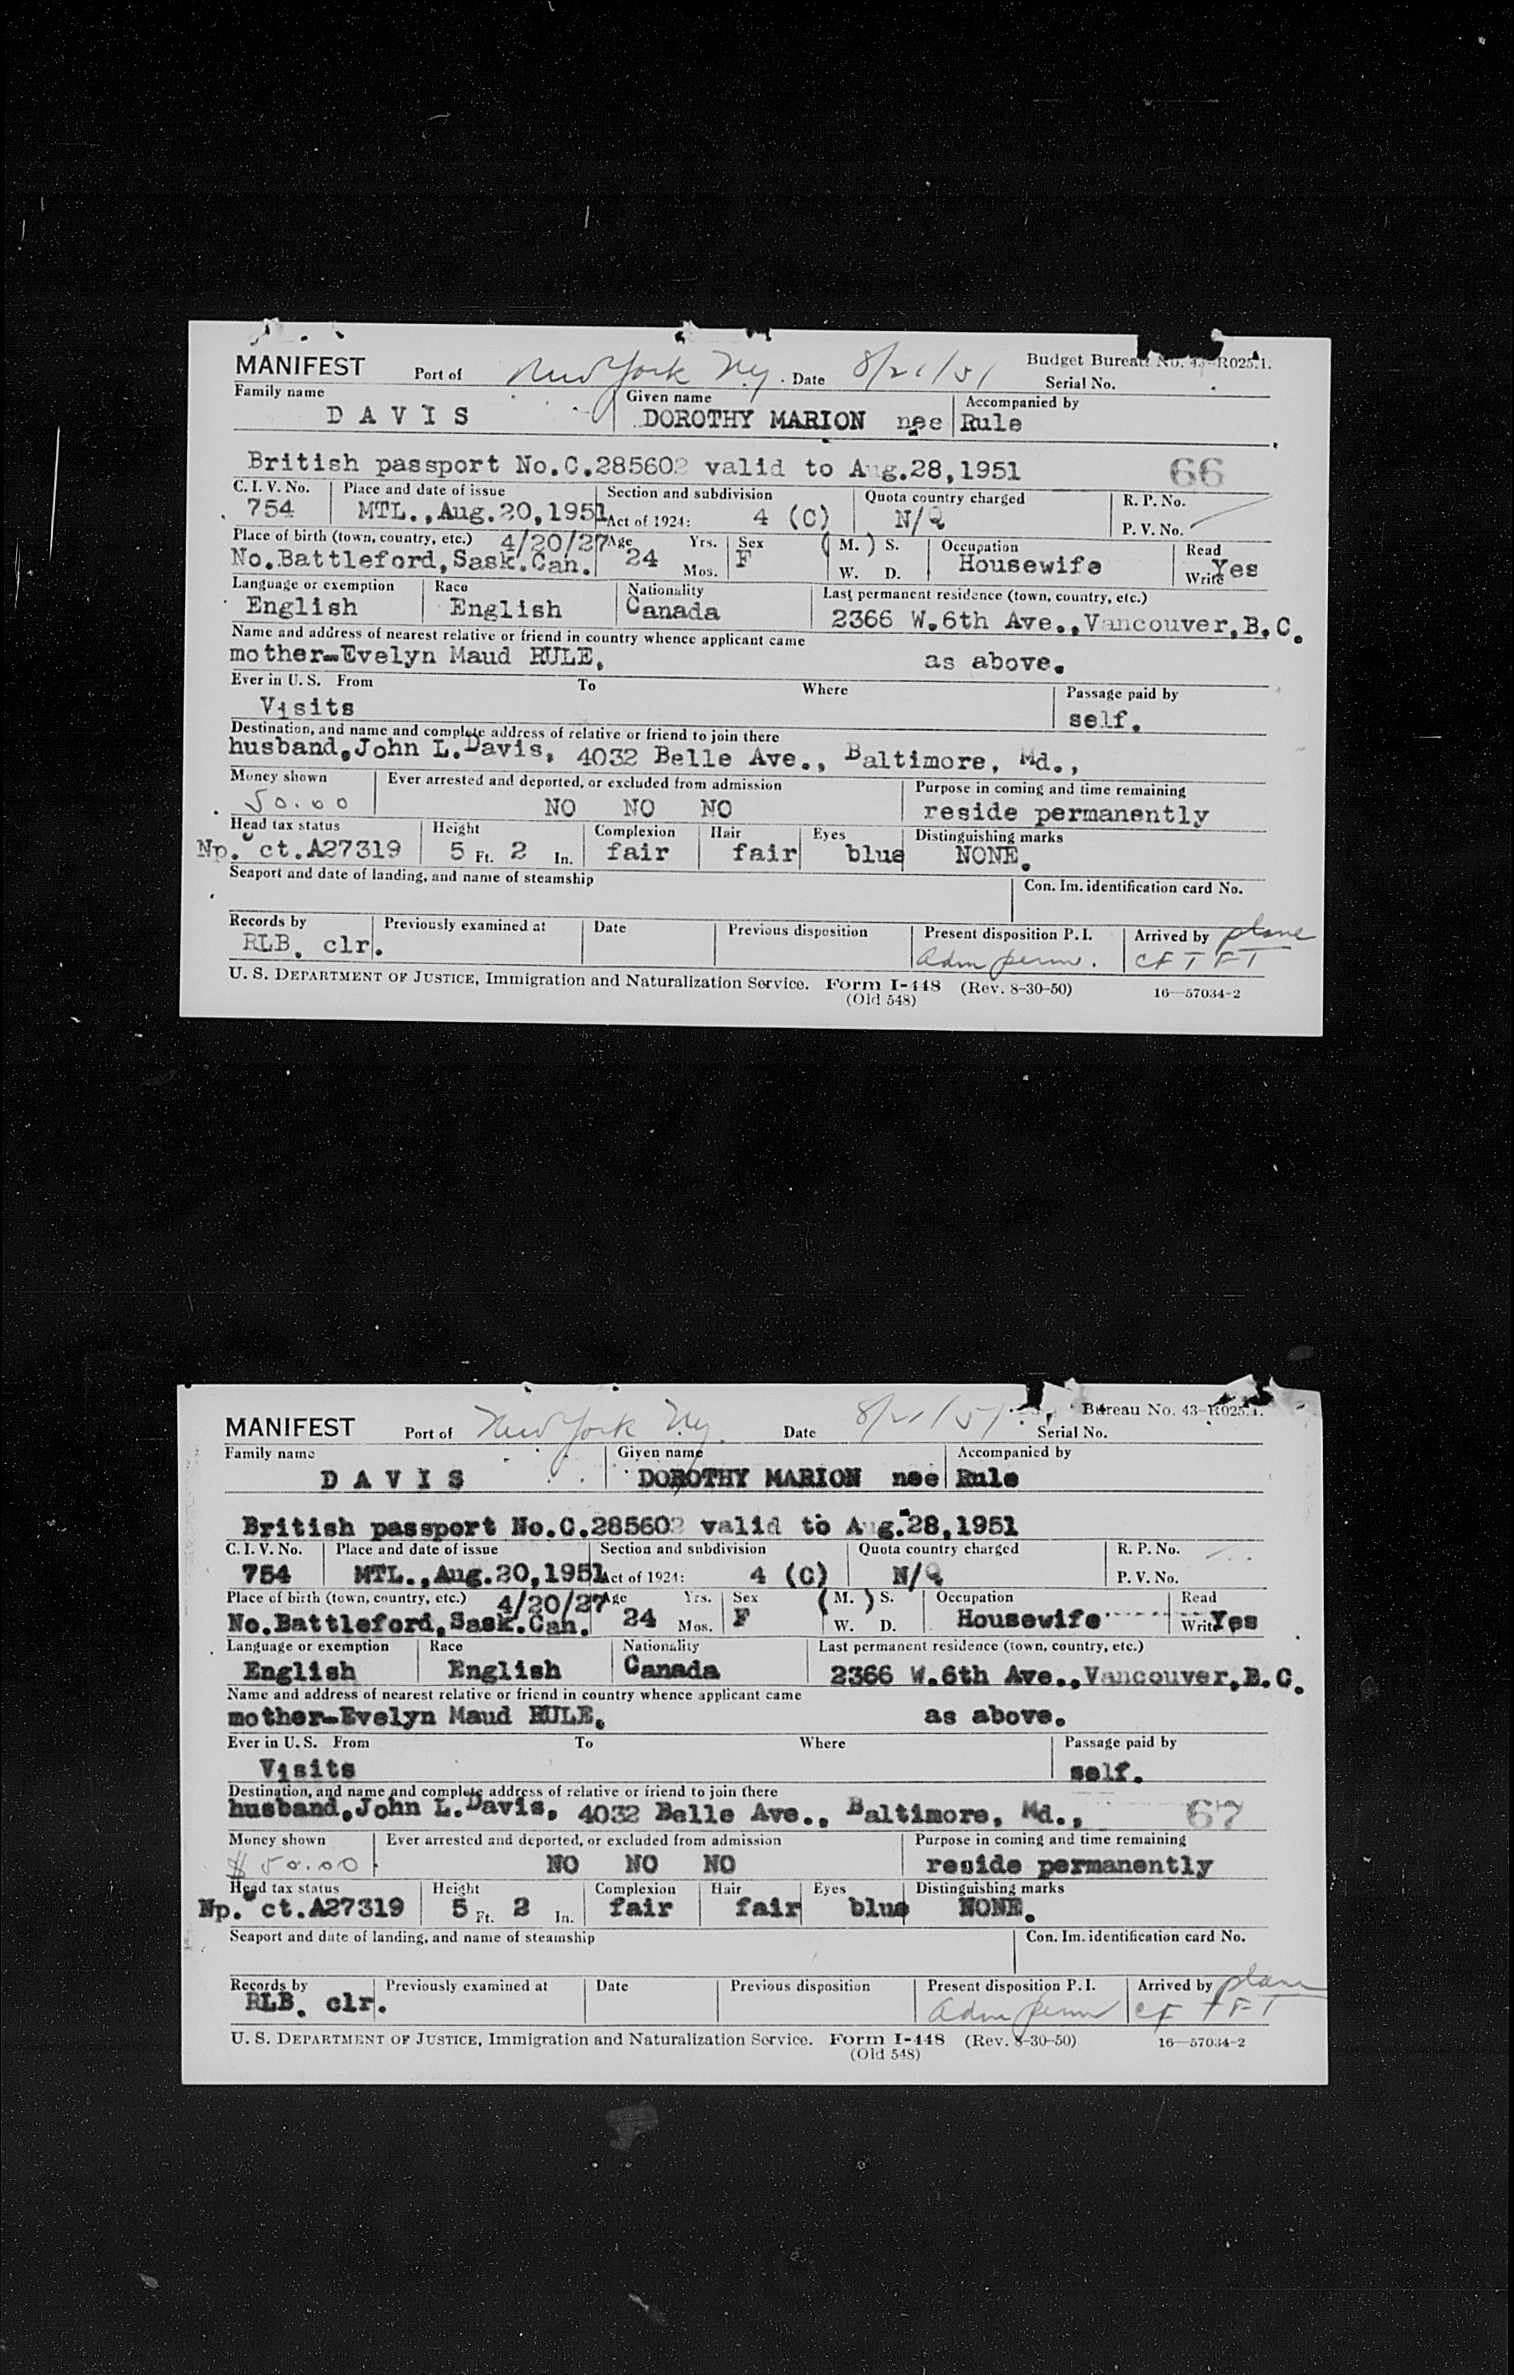 MANIFEST Port of New York Ny. Date 8/21/51 Budget Bureau No. 43-R025.1.
Serial No.
Family name Given name Accompanied by
D A V I S DOROTHY MARION nee Rule
British passport No.C.285602 valid to Aug.28,1951 66
C. I. V. No. Place and date of issue Section and subdivision Quota country charged R. P. No.
754 MTL.,Aug.20,1951 Act of 1924: 4 (C) N/Q P. V. No.
Place of birth (town, country, etc.) 4/20/27 Age Yrs. Sex ( M. ) S. Occupation Read
No.Battleford,Sask.Can. 24 Mos. F W. D. Housewife Write Yes
Language or exemption Race Nationality Last permanent residence (town, country, etc.)
English English Canada 2366 W.6th Ave.,Vancouver,B.C.
Name and address of nearest relative or friend in country whence applicant came
mother-Evelyn Maud RULE, as above.
Ever in U. S. From To Where Passage paid by
Visits self.
Destination, and name and complete address of relative or friend to join there
husband,John L.Davis, 4032 Belle Ave., Baltimore, Md.,
Money shown Ever arrested and deported, or excluded from admission Purpose in coming and time remaining
50.00 NO NO NO reside permanently
Head tax status Height Complexion Hair Eyes Distinguishing marks
Np. ct.A27319 5 Ft. 2 In. fair fair blue NONE.
Seaport and date of landing, and name of steamship Con. Im. identification card No.
Records by Previously examined at Date Previous disposition Present disposition P. I. Arrived by plane
RLB. clr. Adm perm. CF T FT
U. S. DEPARTMENT OF JUSTICE, Immigration and Naturalization Service. Form I-448 (Rev. 8-30-50) 16—57034-2
(Old 548)
MANIFEST Port of New York Ny. Date 8/21/51 Bureau No. 43-R025.1.
Serial No.
Family name Given name Accompanied by
D A V I S DOROTHY MARION nee Rule
British passport No.C.285602 valid to Aug.28,1951
C. I. V. No. Place and date of issue Section and subdivision Quota country charged R. P. No.
754 MTL.,Aug.20,1951 Act of 1924: 4 (C) N/Q P. V. No.
Place of birth (town, country, etc.) 4/20/27 Age Yrs. Sex ( M. ) S. Occupation Read
No.Battleford,Sask.Can. 24 Mos. F W. D. Housewife Write Yes
Language or exemption Race Nationality Last permanent residence (town, country, etc.)
English English Canada 2366 W.6th Ave.,Vancouver,B.C.
Name and address of nearest relative or friend in country whence applicant came
mother-Evelyn Maud RULE, as above.
Ever in U. S. From To Where Passage paid by
Visits self.
Destination, and name and complete address of relative or friend to join there
husband,John L.Davis, 4032 Belle Ave., Baltimore, Md., 67
Money shown Ever arrested and deported, or excluded from admission Purpose in coming and time remaining
$50.00 NO NO NO reside permanently
Head tax status Height Complexion Hair Eyes Distinguishing marks
Np. ct.A27319 5 Ft. 2 In. fair fair blue NONE.
Seaport and date of landing, and name of steamship Con. Im. identification card No.
Records by Previously examined at Date Previous disposition Present disposition P. I. Arrived by plane
RLB. clr. Adm perm CF T FT
U. S. DEPARTMENT OF JUSTICE, Immigration and Naturalization Service. Form I-448 (Rev. 8-30-50) 16—57034-2
(Old 548)